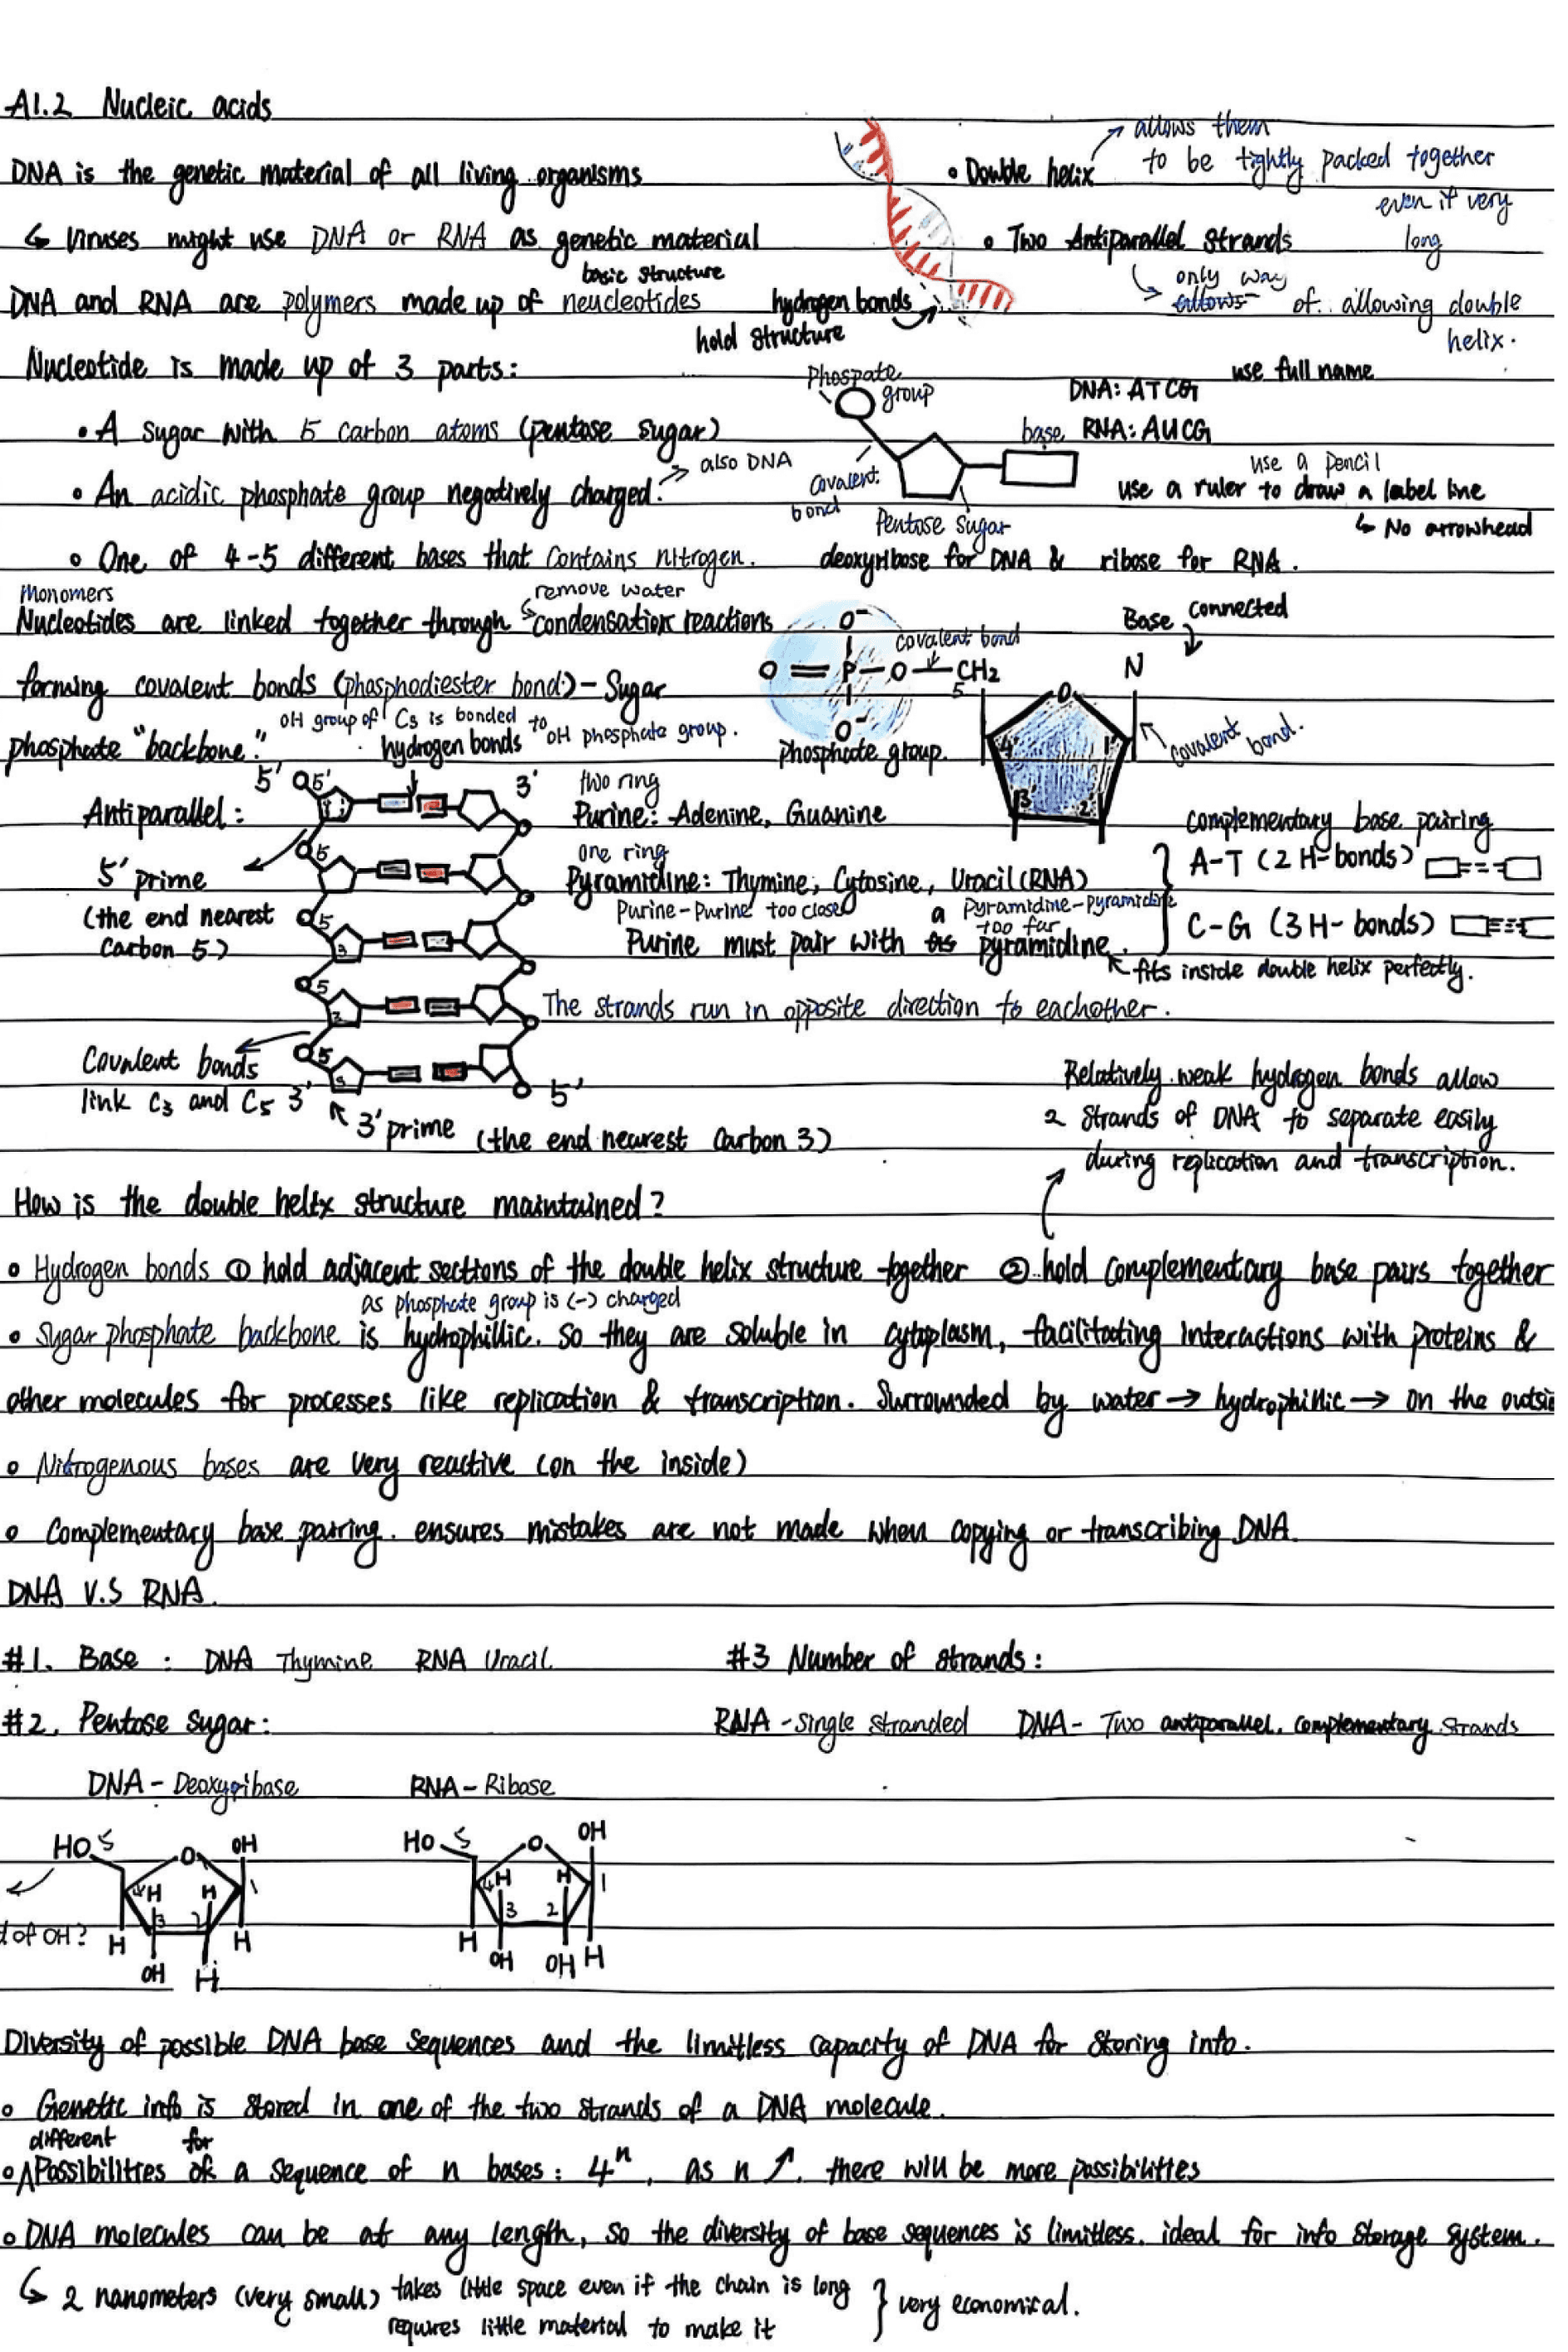 A1.2 Nucleic acids
DNA is the genetic material of all living organisms
↳ Viruses might use DNA or RNA as genetic material
basic structure
DNA and RNA are polymers made up of neucleotides
• Double helix
allows them
to be tightly packed together
even if very
long
• Two Antiparallel strands
only way
allows of allowing double
helix.
hydrogen bonds
hold structure
Nucleotide is made up of 3 parts:
• A sugar with 5 carbon atoms (pentose sugar)
• An acidic phosphate group negatively charged.
also DNA
• One of 4-5 different bases that contains nitrogen.
Phospate
group
Covalent
bond
Pentose sugar
base
deoxyribose for DNA & ribose for RNA.
use full name
DNA: ATCG
RNA: AUCG
use a pencil
use a ruler to draw a label line
↳ No arrowhead
Monomers
remove water
Nucleotides are linked together through condensation reactions
forming covalent bonds (phosphodiester bond) - Sugar
phosphate "backbone."
OH group of C3 is bonded to OH phosphate group.
O⁻
O = P - O - CH2
O⁻
covalent bond
5
Phosphate group.
Base connected
N
O
4' 1'
3' 2'
covalent bond.
hydrogen bonds
5' 5' 3'
Antiparallel:
5' prime
(the end nearest
Carbon 5)
5
5
3
5
3
5
3
Covalent bonds
link C3 and C5 3'
5'
3' prime (the end nearest Carbon 3)
two ring
Purine: Adenine, Guanine
one ring
Pyramidine: Thymine, Cytosine, Uracil (RNA)
Purine-Purine too close
a pyramidine-pyramidine
too far
Purine must pair with pyramidine.
fits inside double helix perfectly.
complementary base pairing
A-T (2 H-bonds)
C-G (3 H-bonds)
The strands run in opposite direction to eachother.
Relatively weak hydrogen bonds allow
2 strands of DNA to separate easily
during replication and transcription.
How is the double helix structure maintained?
• Hydrogen bonds ① hold adjacent sections of the double helix structure together ② hold complementary base pairs together
as phosphate group is (-) charged
• Sugar phosphate backbone is hydrophillic. so they are soluble in cytoplasm, facilitating interactions with proteins &
other molecules for processes like replication & transcription. Surrounded by water → hydrophillic → on the outsi
• Nitrogenous bases are very reactive (on the inside)
• Complementary base pairing. ensures mistakes are not made when copying or transcribing DNA.
DNA V.S RNA.
#1. Base: DNA Thymine RNA Uracil
#2. Pentose sugar:
#3 Number of strands:
RNA - single stranded DNA - Two antiparallel. complementary strands
DNA - Deoxyribase RNA - Ribase
HO 5 O OH
4 H H 1
3 2
H OH H H
d of OH?
HO 5 O OH
4 H H 1
3 2
H OH OH H
Diversity of possible DNA base sequences and the limitless capacity of DNA for storing info.
• Genetic info is stored in one of the two strands of a DNA molecule.
different for
• Possibilities of a sequence of n bases: 4ⁿ, as n ↗. there will be more possibilities
• DNA molecules can be at any length, so the diversity of base sequences is limitless. ideal for info storage system.
↳ 2 nanometers (very small) takes little space even if the chain is long
requires little material to make it
} very economical.